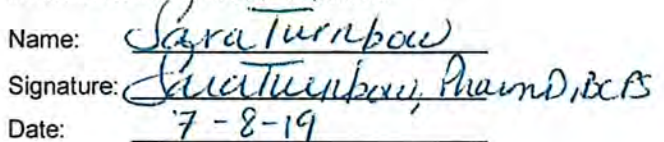 Name: Sara Turnbow
Signature: Sara Turnbow, PharmD, BCPS
Date: 7-8-19